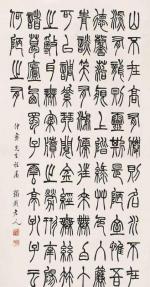 山不在高有仙則名水不在深
有龍則靈斯是陋室惟吾
德馨苔痕上階綠草色入簾青
談笑有鴻儒往來無白丁
可以調素琴閱金經無絲竹
之亂耳無案牘之勞形南陽
諸葛廬西蜀子雲亭孔子云
何陋之有
先生
老人